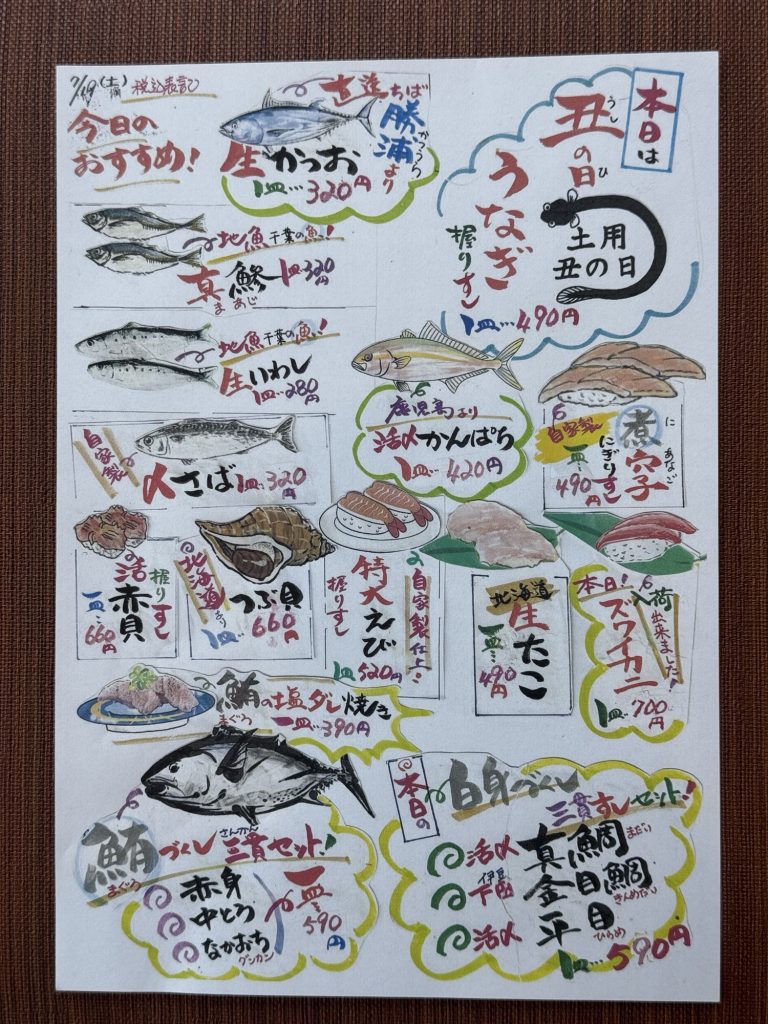 7/19(土)
税込表記
今日の
おすすめ!
直送ちば
勝浦より
かつうら
生かつお
1皿…320円
本日は
丑の日
うし ひ
うなぎ
握りすし
1皿…490円
土用
丑の日
地魚千葉の魚!
真鯵 1皿320円
まあじ
地魚千葉の魚!
生いわし
1皿…280円
自家製
〆さば 1皿320円
鹿児島より
活〆かんぱち
1皿…420円
自家製
煮穴子
に あなご
にぎりすし
一皿…490円
活赤貝
握りすし
一皿…660円
北海道より
つぶ貝
1皿…660円
特大えび
握りすし
自家製仕上
1皿520円
北海道
生たこ
一皿…490円
本日!
入荷出来ました!
ズワイカニ
1皿…700円
鮪の塩ダレ焼き
まぐろ
一皿…390円
鮪づくし三貫セット!
まぐろ さんかん
赤身
中とろ
なかおち
グンカン
一皿…590円
本日の
白身づくし
三貫すしセット!
活〆 真鯛
まだい
伊豆
下田 金目鯛
きんめだい
活〆 平目
ひらめ
1皿…590円